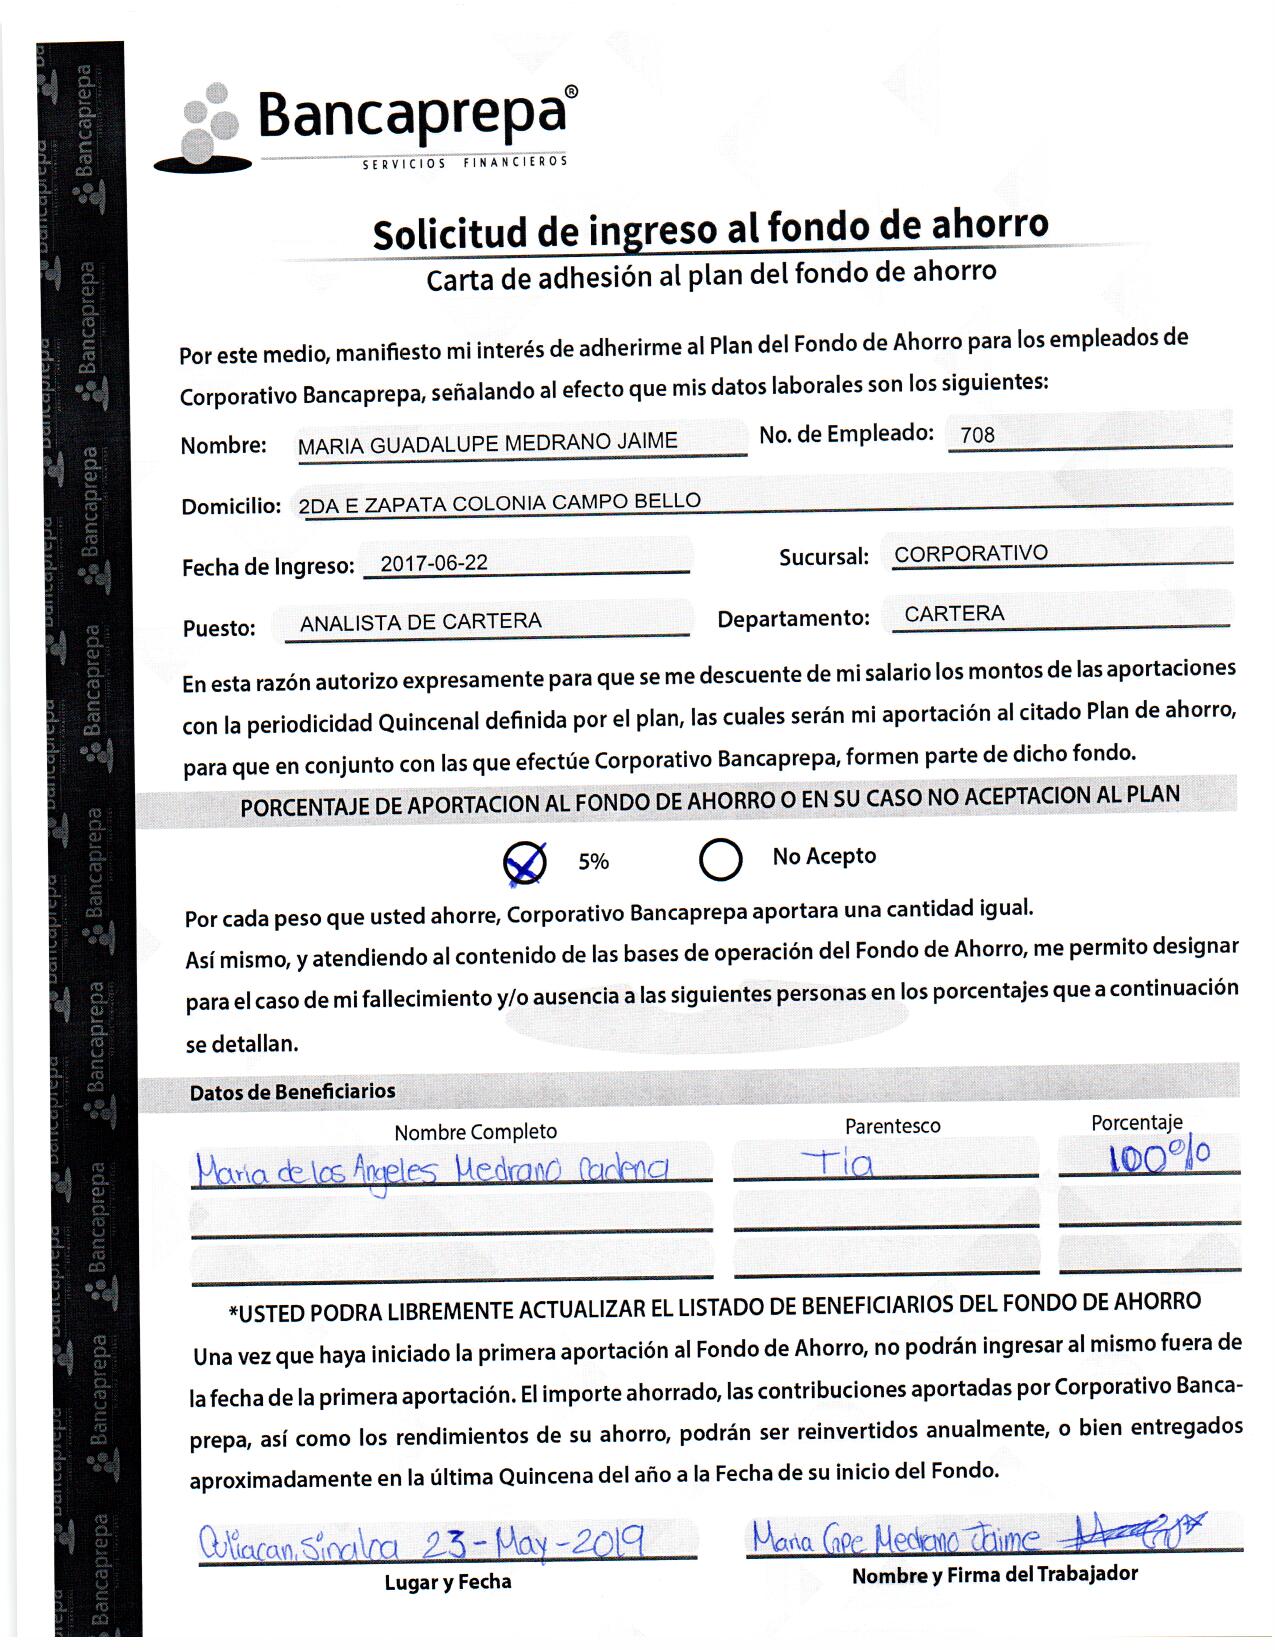 Bancaprepa®
SERVICIOS FINANCIEROS
Solicitud de ingreso al fondo de ahorro
Carta de adhesión al plan del fondo de ahorro
Por este medio, manifiesto mi interés de adherirme al Plan del Fondo de Ahorro para los empleados de
Corporativo Bancaprepa, señalando al efecto que mis datos laborales son los siguientes:
Nombre: MARIA GUADALUPE MEDRANO JAIME No. de Empleado: 708
Domicilio: 2DA E ZAPATA COLONIA CAMPO BELLO
Fecha de Ingreso: 2017-06-22 Sucursal: CORPORATIVO
Puesto: ANALISTA DE CARTERA Departamento: CARTERA
En esta razón autorizo expresamente para que se me descuente de mi salario los montos de las aportaciones
con la periodicidad Quincenal definida por el plan, las cuales serán mi aportación al citado Plan de ahorro,
para que en conjunto con las que efectúe Corporativo Bancaprepa, formen parte de dicho fondo.
PORCENTAJE DE APORTACION AL FONDO DE AHORRO O EN SU CASO NO ACEPTACION AL PLAN
5% No Acepto
Por cada peso que usted ahorre, Corporativo Bancaprepa aportara una cantidad igual.
Así mismo, y atendiendo al contenido de las bases de operación del Fondo de Ahorro, me permito designar
para el caso de mi fallecimiento y/o ausencia a las siguientes personas en los porcentajes que a continuación
se detallan.
Datos de Beneficiarios
Nombre Completo Parentesco Porcentaje
Maria de los Angeles Medrano Cadena Tia 100%
*USTED PODRA LIBREMENTE ACTUALIZAR EL LISTADO DE BENEFICIARIOS DEL FONDO DE AHORRO
Una vez que haya iniciado la primera aportación al Fondo de Ahorro, no podrán ingresar al mismo fuera de
la fecha de la primera aportación. El importe ahorrado, las contribuciones aportadas por Corporativo Banca-
prepa, así como los rendimientos de su ahorro, podrán ser reinvertidos anualmente, o bien entregados
aproximadamente en la última Quincena del año a la Fecha de su inicio del Fondo.
Culiacan, Sinaloa 23-May-2019 Maria Gpe Medrano Jaime
Lugar y Fecha Nombre y Firma del Trabajador